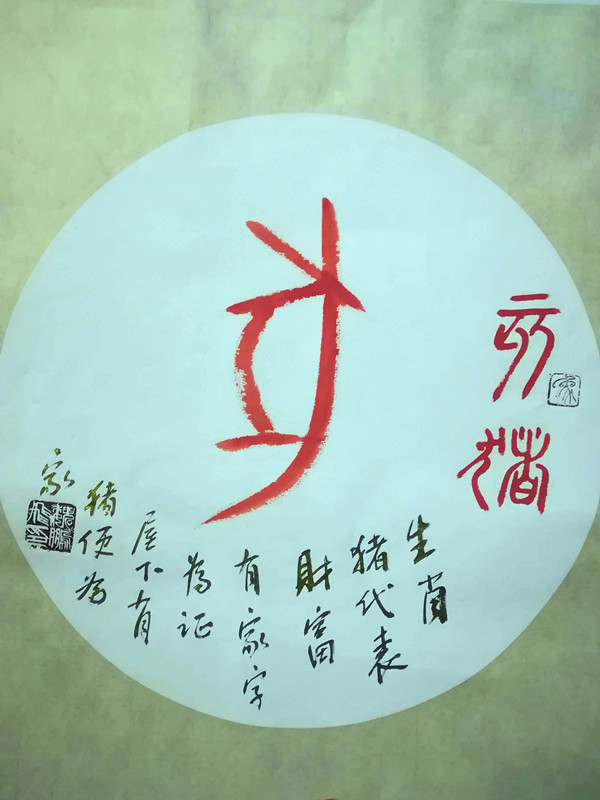 亥猪
生肖
猪代表
財富
有家字
為证
屋下有
猪便为
家